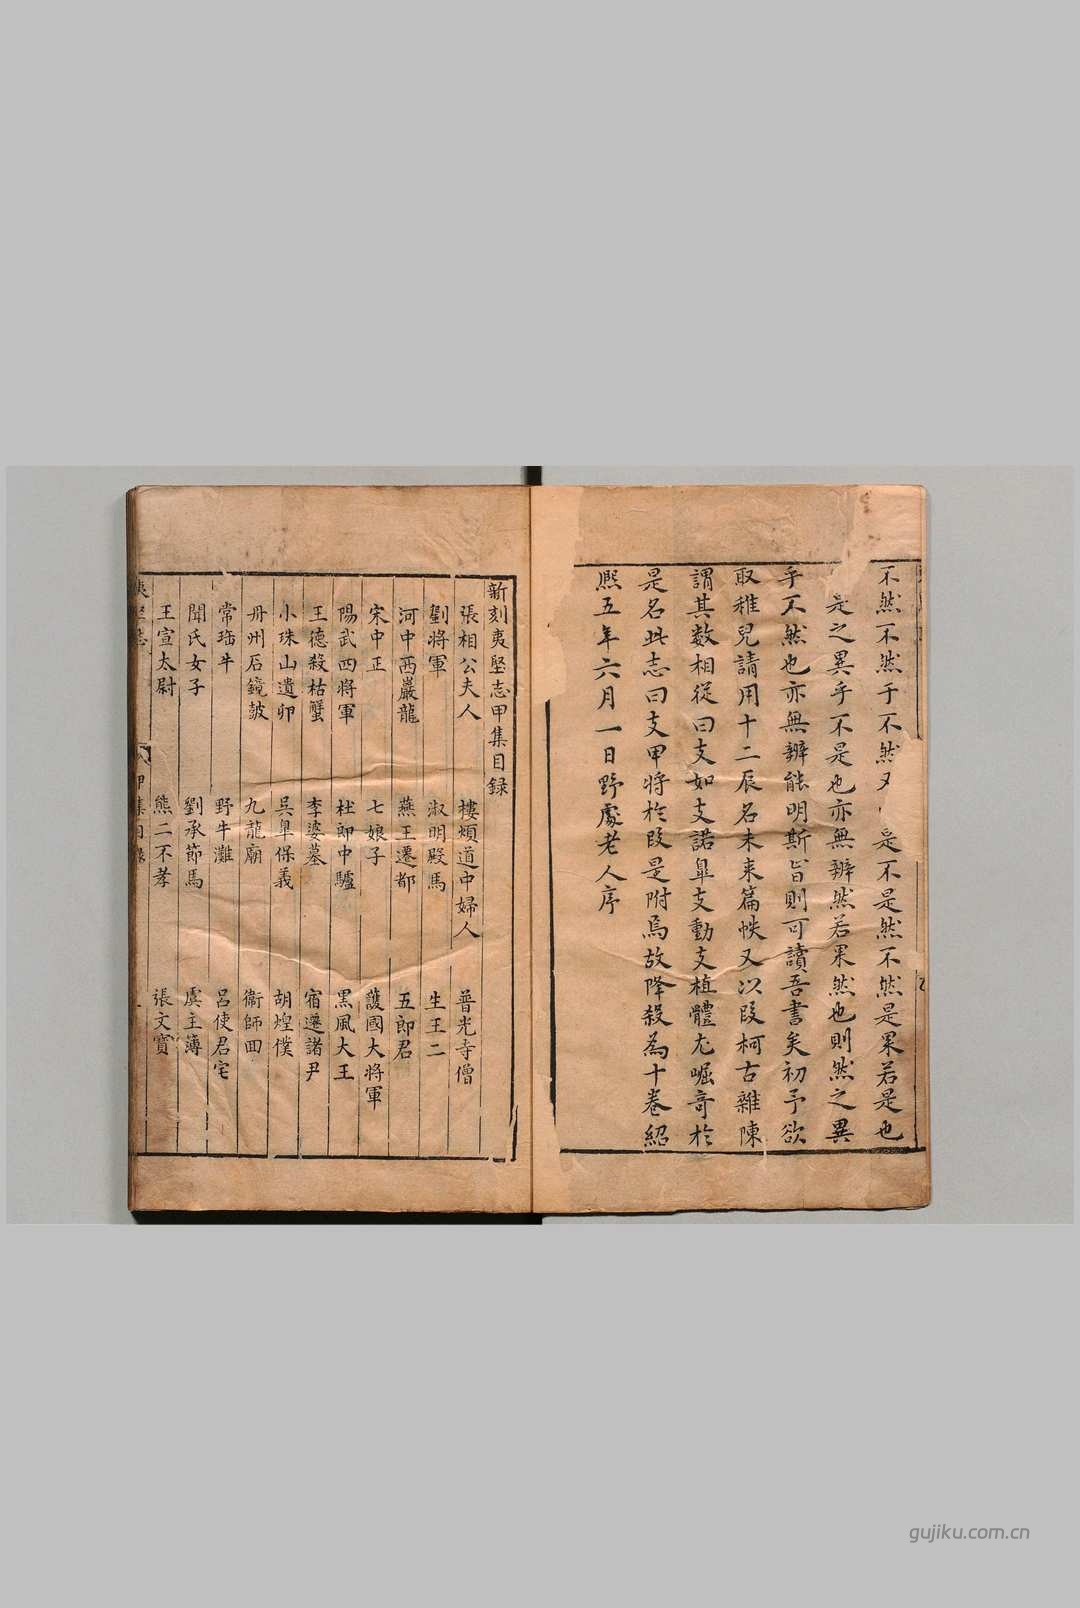 不然不然于不然 是不是然不然是果若是也
是之異乎不是也亦無辨然若果然也則然之異
乎不然也亦無辨能明斯旨則可讀吾書矣初予欲
取稚兒請用十二辰名未来篇帙又以段柯古雜陳
謂其数相從曰支如支諾皐支動支植體尤崛奇於
是名此志曰支甲將於段是附焉故降殺為十卷紹
熙五年六月一日野處老人序
新刻夷堅志甲集目録
張相公夫人 樓煩道中婦人 普光寺僧
劉將軍 淑明殿馬 生王二
河中西巖龍 燕王遷都 五郎君
宋中正 七娘子 護國大將軍
陽武四將軍 杜郎中驢 黑風大王
王德殺枯蟹 李婆墓 宿遷諸尹
小珠山遺卵 呉皐保義 胡煌僕
丹州石鏡皷 九龍廟 衞師回
常瑎牛 野牛灘 呂使君宅
聞氏女子 劉承節馬 虞主簿
王宣太尉 熊二不孝 張文寳
夷堅志 甲集目録
gujiku.com.cn